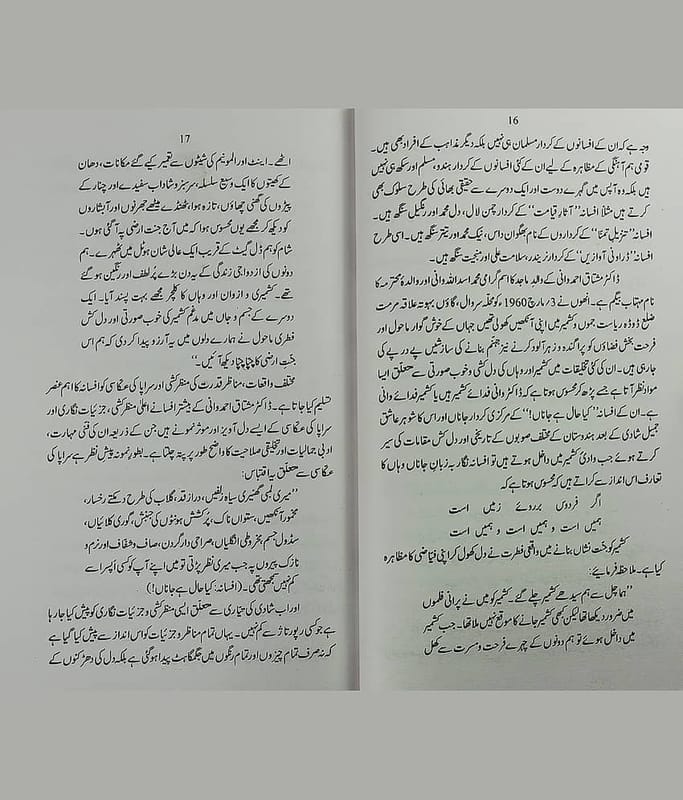 16
وجہ ہے کہ ان کے افسانوں کے کردار مسلمان ہی نہیں بلکہ دیگر مذاہب کے افراد بھی ہیں۔
قومی ہم آہنگی کے مظاہرہ کے لیے ان کے کئی افسانوں کے کردار ہندو، مسلم اور سکھ ہی نہیں
ہیں بلکہ وہ آپس میں گہرے دوست اور ایک دوسرے سے حقیقی بھائی کی طرح سلوک بھی
کرتے ہیں مثلاً افسانہ ”آثارِ قیامت“ کے کردار چمن لال، دل محمد اور رنگیل سنگھ ہیں۔
افسانہ ”تنزیلِ تمنّا“ کے کرداروں کے نام بھگوان داس، نیک محمد اور تیتر سنگھ ہیں۔ اسی طرح
افسانہ ”ڈراونی آوازیں“ کے کردار نریندر، سلامت علی اور منجیت سنگھ ہیں۔
ڈاکٹر مشتاق احمد وانی کے والد ماجد کا اسم گرامی محمد اسد اللہ وانی اور والدۂ محترمہ کا
نام مہتاب بیگم ہے۔ انھوں نے 3؍مارچ 1960ء کو محلّہ سروال، گاؤں بہوتہ علاقہ مرمت
ضلع ڈوڈہ ریاست جموں و کشمیر میں اپنی آنکھیں کھولی تھیں جہاں کے خوش گوار ماحول اور
فرحت بخش فضاؤں کو پراگندہ و زہر آلود کرنے نیز جہنم بنانے کی سازشیں پے در پے کی
جا رہی ہیں۔ ان کی کئی تخلیقات میں کشمیر اور وہاں کی دل کشی و خوب صورتی سے متعلق ایسا
مواد نظر آتا ہے جسے پڑھ کر محسوس ہوتا ہے کہ ڈاکٹر وانی فدائے کشمیر ہیں یا کشمیر فدائے وانی
ہے۔ ان کے افسانہ ”کیا حال ہے جاناں!“ کے مرکزی کردار جاناں اور اس کا شوہر عاشق
جمیل شادی کے بعد ہندوستان کے مختلف صوبوں کے تاریخی اور دل کش مقامات کی سیر
کرتے ہوئے جب وادیٔ کشمیر میں داخل ہوتے ہیں تو افسانہ نگار بہ زبانِ جاناں وہاں کا
تعارف اس انداز سے کراتے ہیں کہ محسوس ہوتا ہے کہ
اگر فردوس برروئے زمیں است
ہمیں است و ہمیں است و ہمیں است
کشمیر کو جنّت نشاں بنانے میں واقعی فطرت نے دل کھول کر اپنی فیاضی کا مظاہرہ
کیا ہے۔ ملاحظہ فرمائیے:
”ہماچل سے ہم سیدھے کشمیر چلے گئے۔ کشمیر کو میں نے پرانی فلموں
میں ضرور دیکھا تھا لیکن کبھی کشمیر جانے کا موقع نہیں ملا تھا۔ جب کشمیر
میں داخل ہوئے تو ہم دونوں کے چہرے فرحت و مسرت سے کھل
17
اٹھے۔ اینٹ اور المونیم کی شیٹوں سے تعمیر کیے گئے مکانات، دھان
کے کھیتوں کا ایک وسیع سلسلہ، سرسبز و شاداب سفیدے اور چنار کے
پیڑوں کی گھنی چھاؤں، تازہ ہوا، ٹھنڈے میٹھے جھرنوں اور آبشاروں
کو دیکھ کر مجھے یوں محسوس ہوا کہ میں آج جنت ارضی پہ آ گئی ہوں۔
شام کو ہم ڈل گیٹ کے قریب ایک عالی شان ہوٹل میں ٹھہرے۔ ہم
دونوں کی ازدواجی زندگی کے یہ دن بڑے پُر لطف اور رنگین ہو گئے
تھے۔ کشمیری وازوان اور وہاں کا کلچر مجھے بہت پسند آیا۔ ایک
دوسرے کے جسم و جاں میں مدغم کشمیر کی خوب صورتی اور دل کش
فطری ماحول نے ہمارے دلوں میں یہ آرزو پیدا کر دی کہ ہم اس
جنتِ ارضی کا چپّا چپّا دیکھ آئیں۔“
مختلف واقعات، مناظر قدرت کی منظر کشی اور سراپا کی عکّاسی کو افسانہ کا اہم عنصر
تسلیم کیا جاتا ہے۔ ڈاکٹر مشتاق احمد وانی کے بیشتر افسانے اعلیٰ منظر کشی، جزئیات نگاری اور
سراپا کی عکّاسی کے ایسے دل آویز اور موثر نمونے ہیں جن کے ذریعہ ان کی فنّی مہارت،
ادبی جمالیات اور تخلیقی صلاحیت کا واضح طور پر پتہ چلتا ہے۔ بطورِ نمونہ پیش نظر ہے سراپا کی
عکّاسی سے متعلق یہ اقتباس:
”میری لمبی گھنیری سیاہ زلفیں، دراز قد، گلاب کی طرح دمکتے رخسار،
مخمور آنکھیں، ستواں ناک، پرکشش ہونٹوں کی جنبش، گوری کلائیاں،
سڈول جسم، مخروطی انگلیاں، صراحی دار گردن، صاف و شفاف اور نرم و
نازک پیروں پہ جب میری نظر پڑتی تو میں اپنے آپ کو کسی اُپسرا سے
کم نہیں سمجھتی تھی۔ (افسانہ: کیا حال ہے جاناں!)
اور اب شادی کی تیاری سے متعلق ایسی منظر کشی و جزئیات نگاری کو پیش کیا جا رہا
ہے جو کسی رپورتاژ سے کم نہیں۔ یہاں تمام مناظر و جزئیات کو اس انداز سے پیش کیا گیا ہے
کہ نہ صرف تمام چیزوں اور تمام رنگوں میں جگمگاہٹ پیدا ہو گئی ہے بلکہ دل کی دھڑکنوں کے